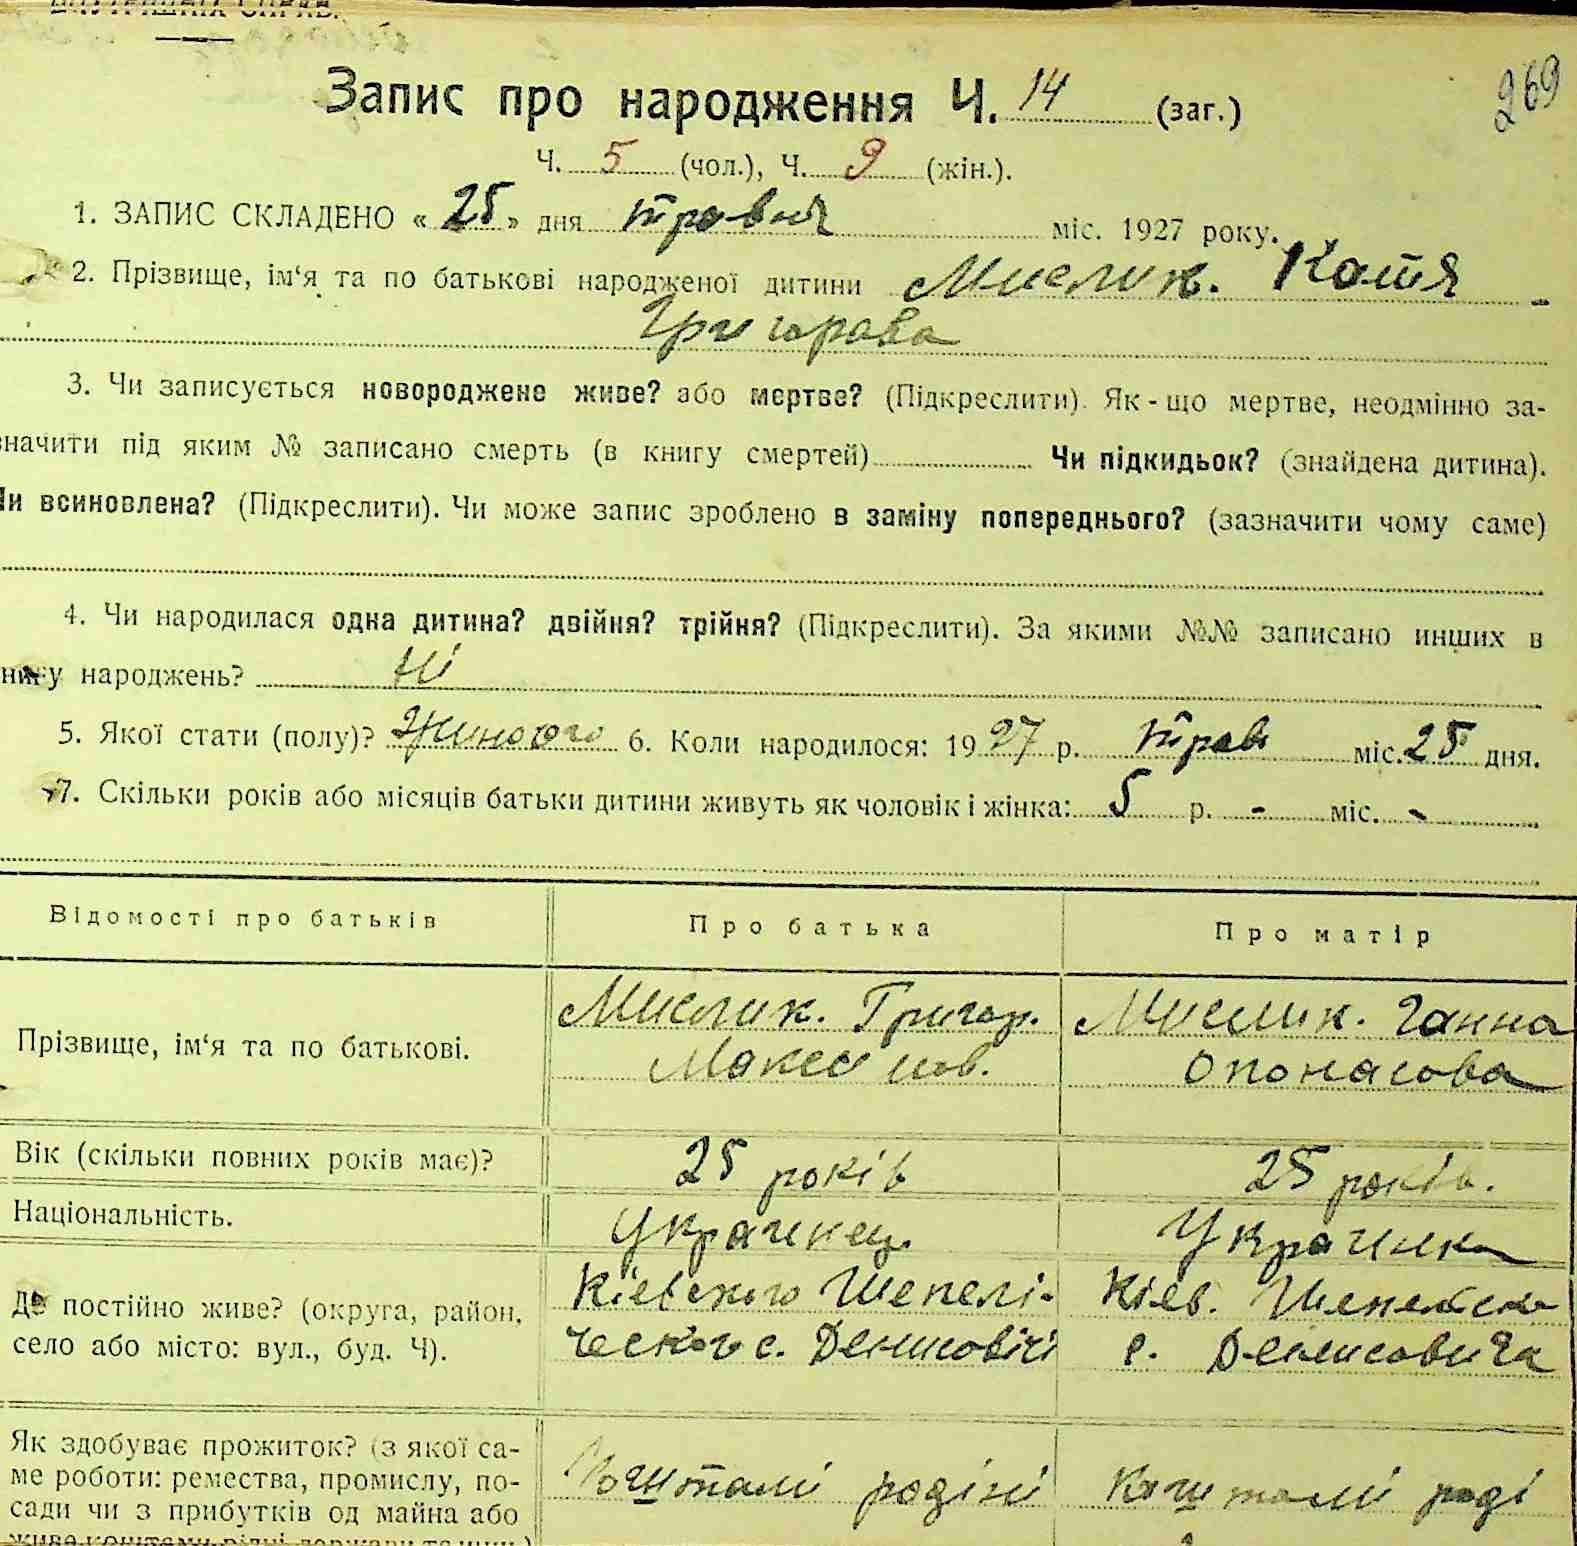 ВНУТРІШНІХ СПРАВ.
Запис про народження Ч. 14 (заг.)
269
Ч. 5 (чол.), Ч. 9 (жін.).
1. ЗАПИС СКЛАДЕНО « 25 » дня травня міс. 1927 року.
2. Прізвище, ім‘я та по батькові народженої дитини Мислик. Катя
Григорова
3. Чи записується новороджене живе? або мертве? (Підкреслити). Як-що мертве, неодмінно за-
значити під яким № записано смерть (в книгу смертей) Чи підкидьок? (знайдена дитина).
Чи всиновлена? (Підкреслити). Чи може запис зроблено в заміну попереднього? (зазначити чому саме)
4. Чи народилася одна дитина? двійня? трійня? (Підкреслити). За якими №№ записано инших в
книгу народжень? Ні
5. Якої стати (полу)? Жиного 6. Коли народилося: 1927 р. трав міс. 25 дня.
7. Скільки років або місяців батьки дитини живуть як чоловік і жінка: 5 р. - міс. -
Відомості про батьків Про батька Про матір
Прізвище, ім‘я та по батькові. Мислик. Григор. Мислик. Ганна
Максимов. Опонасова
Вік (скільки повних років має)? 25 років 25 років.
Національність. Украинец. Украинка
Де постійно живе? (округа, район, Кіевского Шепелі- Кіев. Шепеліско
село або місто: вул., буд. Ч). ческого с. Денисовічі с. Денисовича
Як здобуває прожиток? (з якої са-
ме роботи: ремества, промислу, по- Коштами родіни Коштами роді
сади чи з прибутків од майна або
живе коштами рідні, держави та инш.)